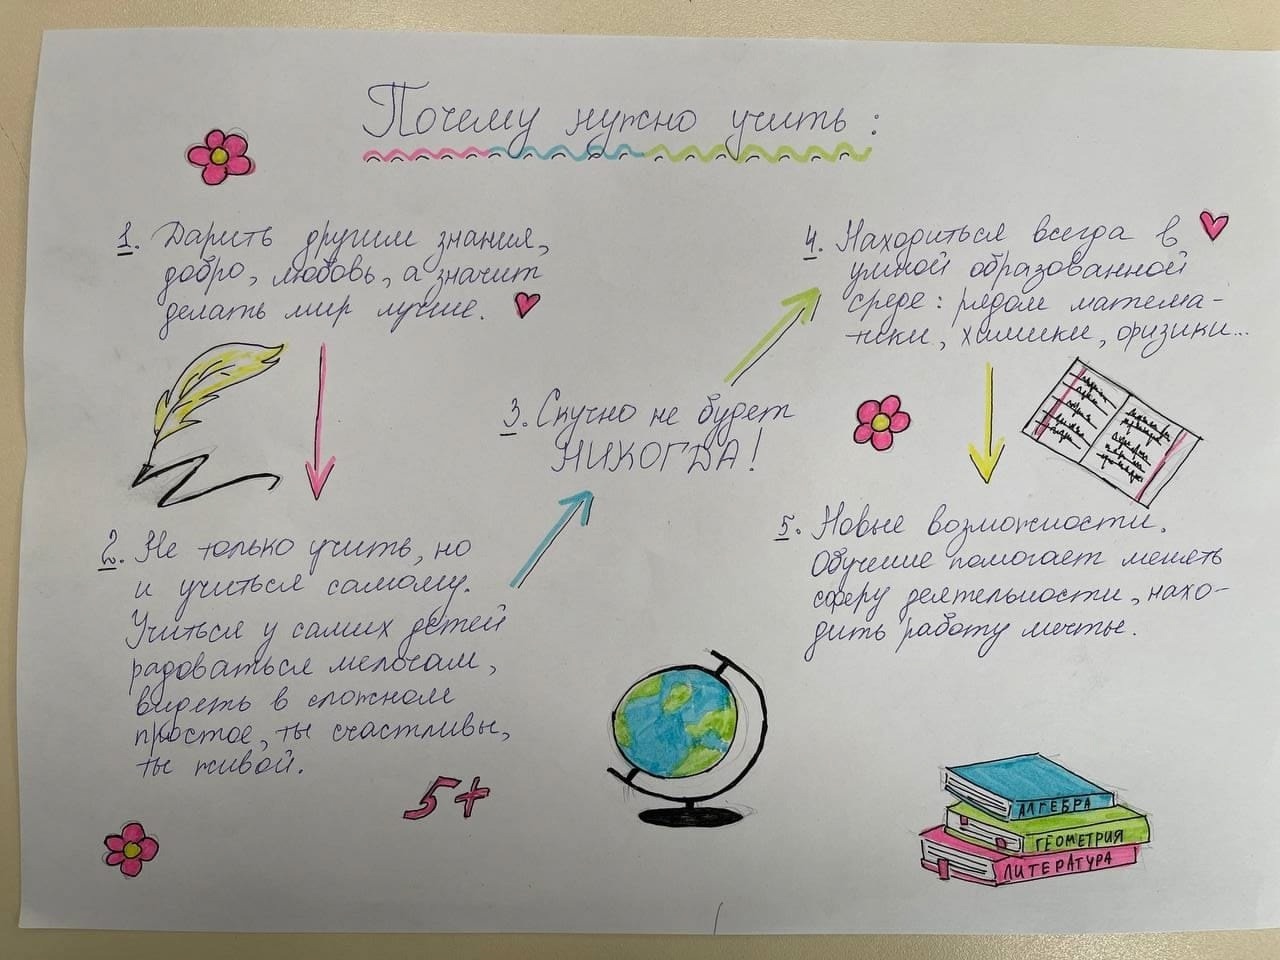 Почему нужно учить:
1. Дарить другим знания,
добро, любовь, а значит
делать мир лучше.
2. Не только учить, но
и учиться самому.
Учиться у самих детей
радоваться мелочам,
видеть в сложном
простое, ты счастливы,
ты живой.
5+
3. Скучно не будет
НИКОГДА!
4. Находиться всегда в
умной образованной
среде: рядом матема-
тики, химики, физики...
5. Новые возможности.
Обучение помогает менять
сферу деятельности, нахо-
дить работу мечты.
АЛГЕБРА
ГЕОМЕТРИЯ
ЛИТЕРАТУРА